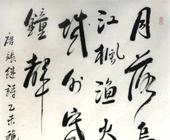 月落烏
江楓漁火
城外寒
鐘聲
唐張繼詩乙未